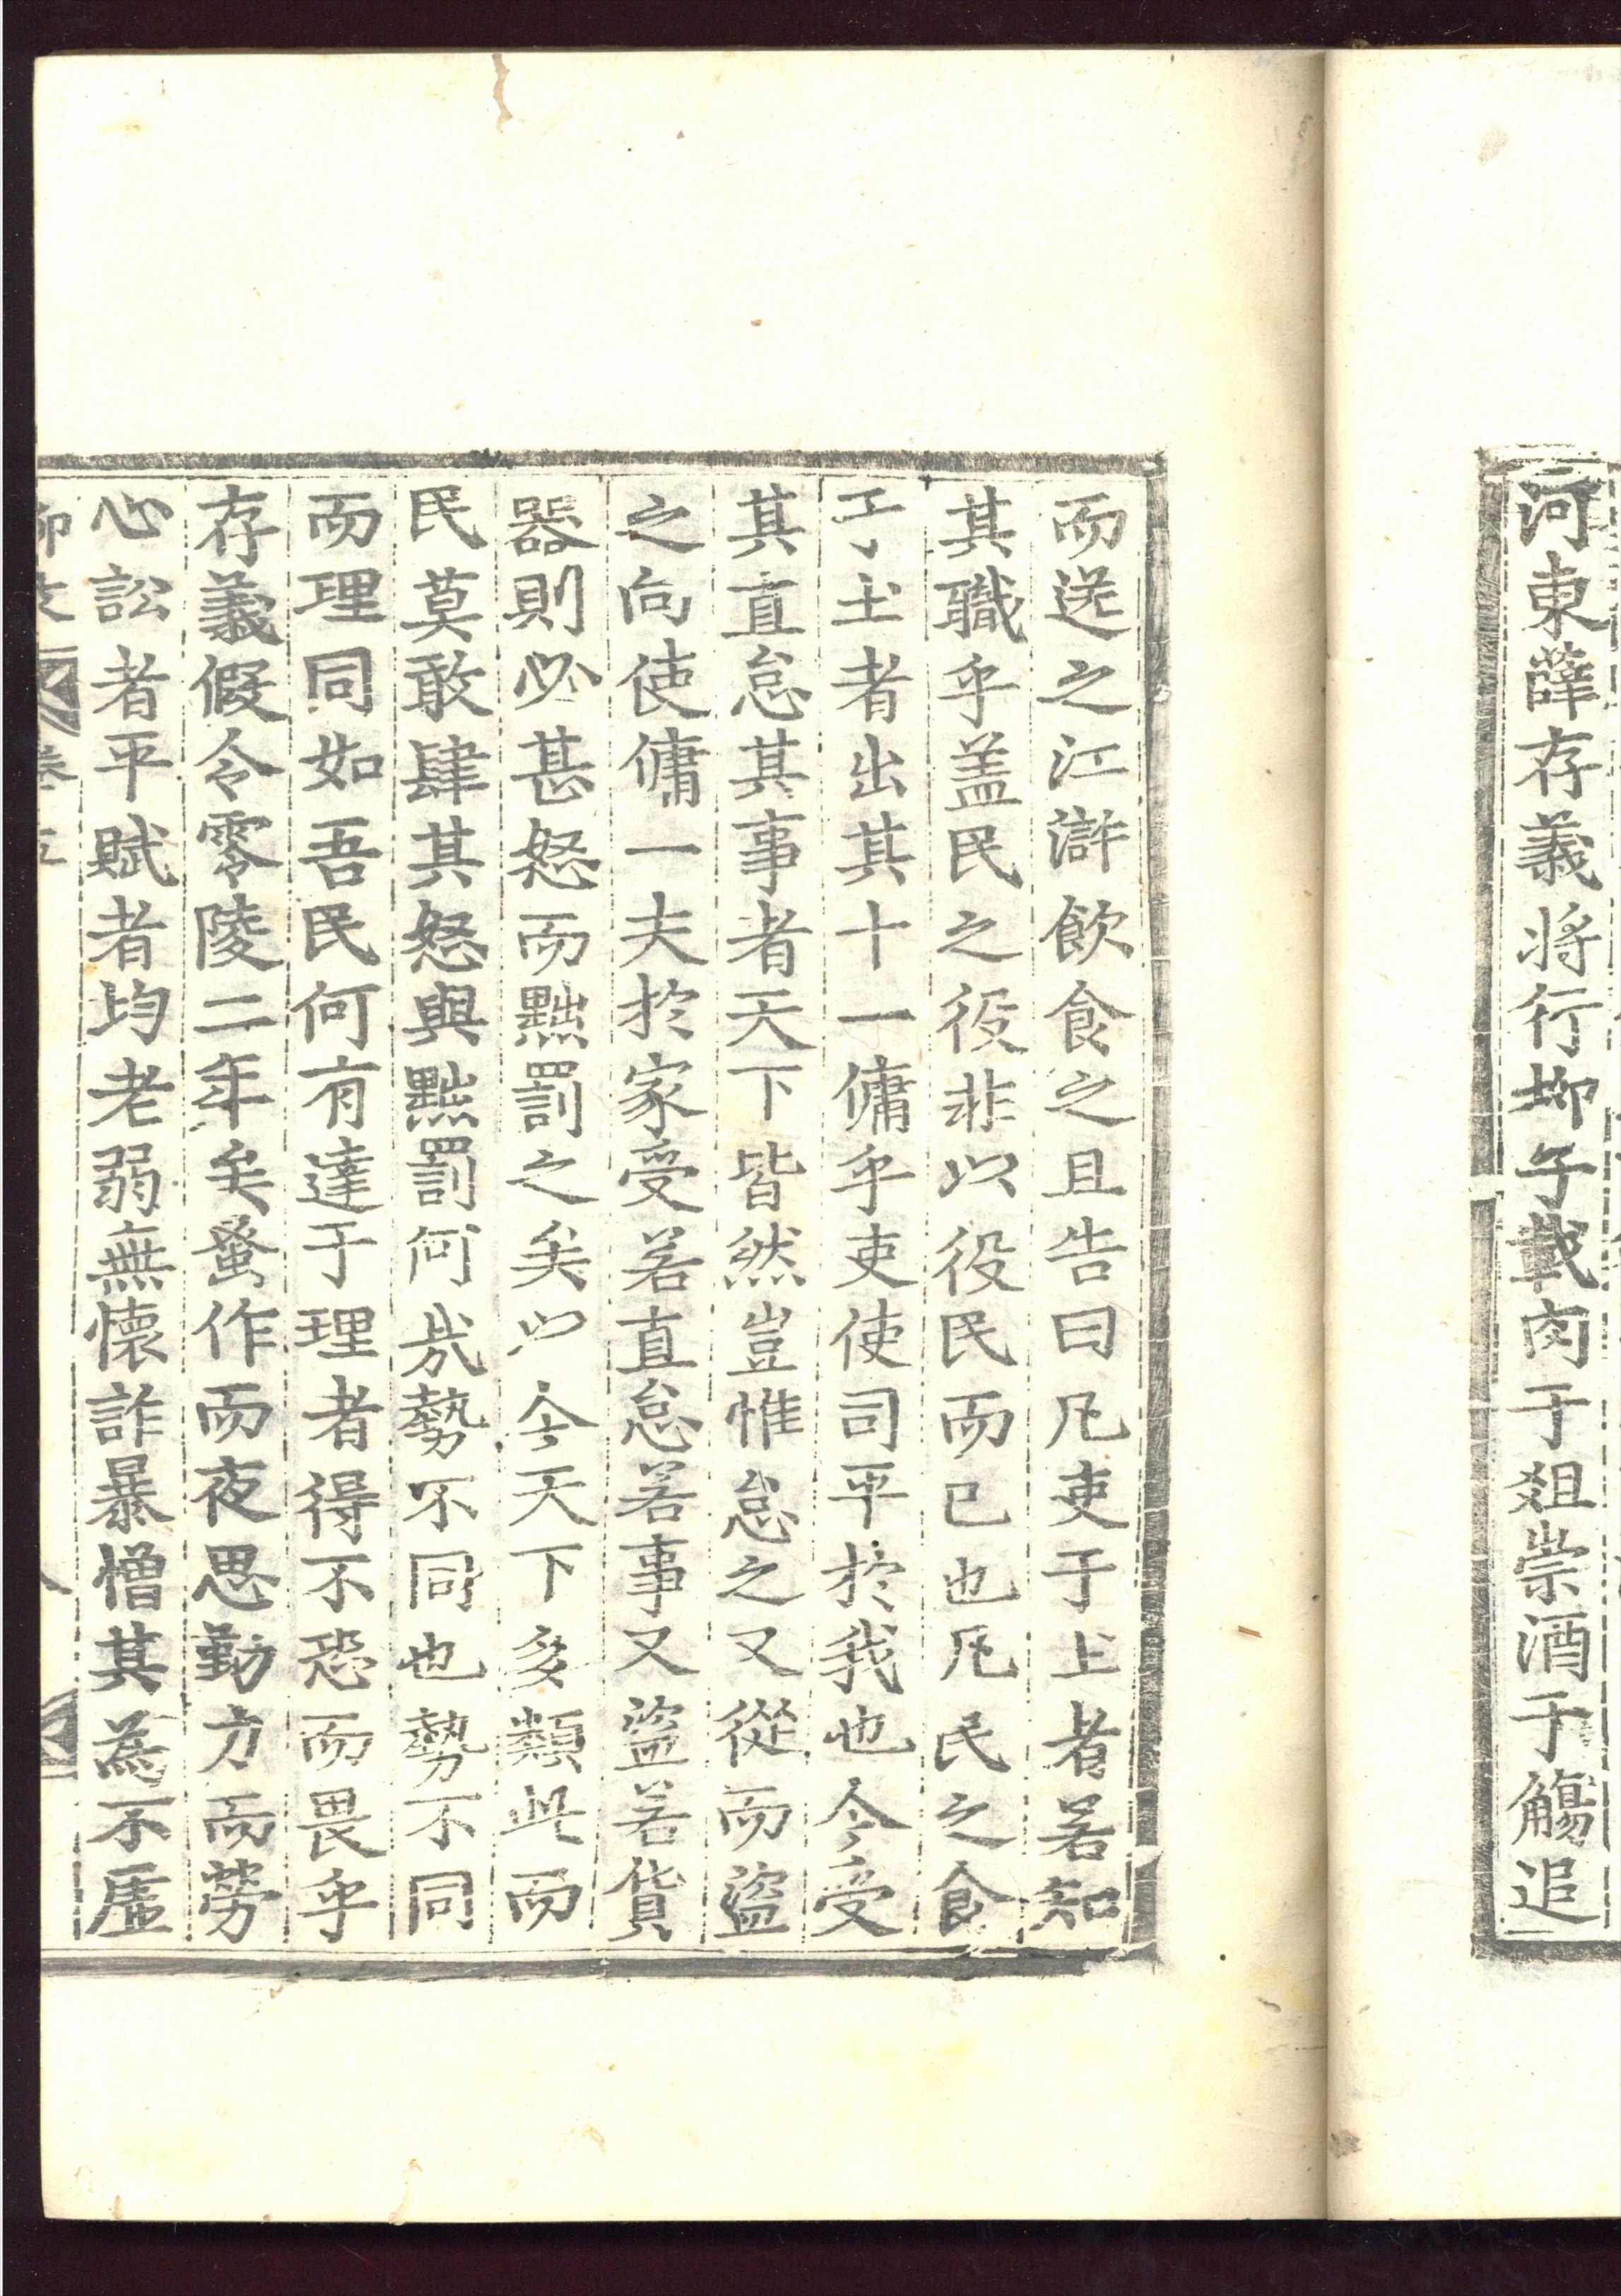 河東薛存義将行柳子載肉于爼崇酒于觴追
而送之江滸飲食之且告曰凡吏于土者若知
其職乎盖民之役非以役民而已也凡民之食
于土者出其十一傭乎吏使司平於我也今受
其直怠其事者天下皆然豈惟怠之又從而盜
之向使傭一夫於家受若直怠若事又盜若貨
器則必甚怒而黜罰之矣以今天下多類此而
民莫敢肆其怒與黜罰何㢤勢不同也勢不同
而理同如吾民何有達于理者得不恐而畏乎
存義假令零陵二年矣蚤作而夜思勤力而勞
心訟者平賦者均老弱無懷詐暴憎其為不虛
柳文 卷五